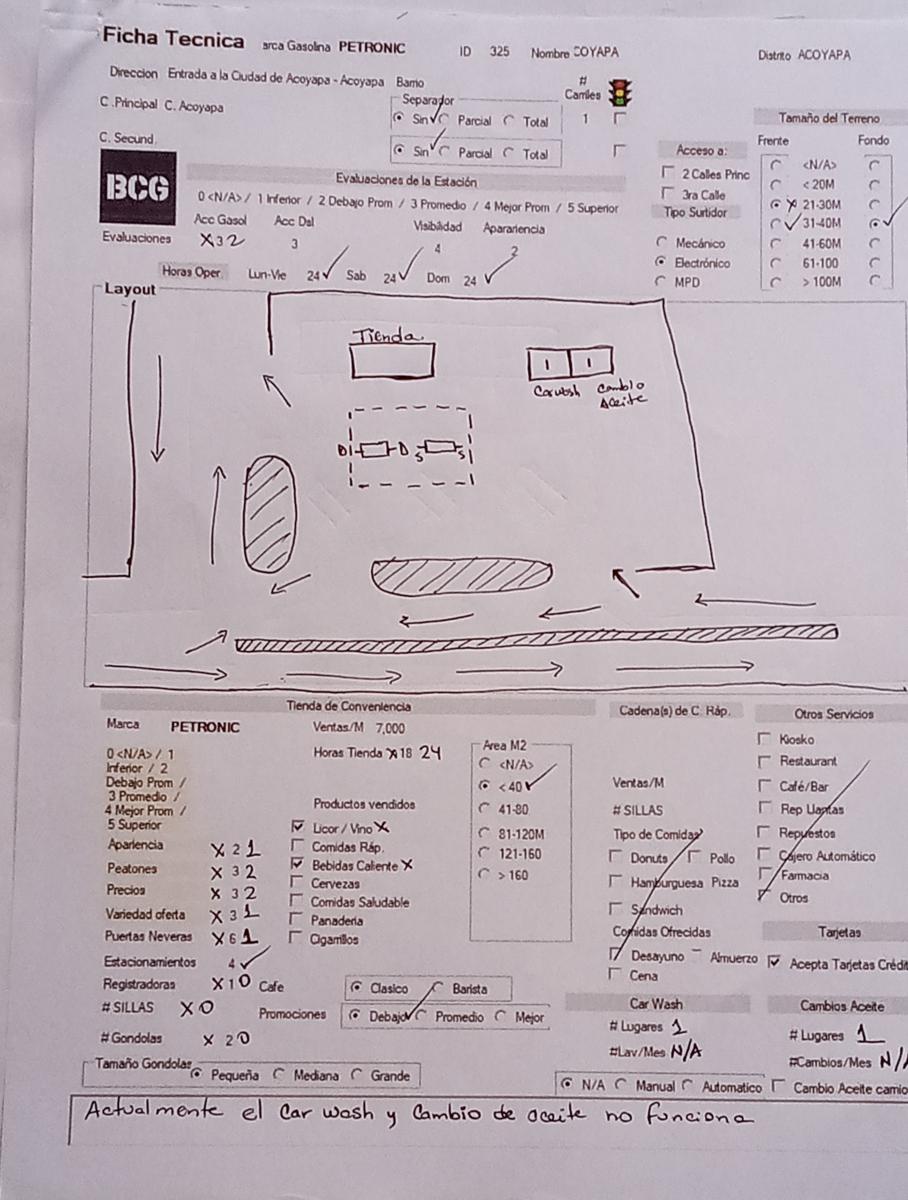 Ficha Tecnica arca Gasolina PETRONIC ID 325 Nombre COYAPA Distrito ACOYAPA
Direccion Entrada a la Ciudad de Acoyapa - Acoyapa Barrio # Carriles
C .Principal C. Acoyapa Separador
Sin Parcial Total 1
C. Secund. Sin Parcial Total
Tamaño del Terreno
Frente Fondo
Acceso a: <N/A>
2 Calles Princ < 20M
3ra Calle 21-30M
Tipo Surtidor 31-40M
Mecánico 41-60M
Electrónico 61-100
MPD > 100M
BCG
Evaluaciones de la Estación
0 <N/A> / 1 Inferior / 2 Debajo Prom / 3 Promedio / 4 Mejor Prom / 5 Superior
Acc Gasol Acc Dsl Visibilidad Aparariencia
Evaluaciones X 3 2 3 4 2
Horas Oper. Lun-Vie 24 Sab 24 Dom 24
Layout
Tienda
1 1
Carwash Cambio Aceite
D D S S
Tienda de Conveniencia
Marca PETRONIC Ventas/M 7,000
0 <N/A> / 1
Inferior / 2
Debajo Prom /
3 Promedio /
4 Mejor Prom /
5 Superior
Horas Tienda X 18 24
Area M2
<N/A>
< 40
41-80
81-120M
121-160
> 160
Productos vendidos
Licor / Vino X
Comidas Ráp.
Bebidas Caliente X
Cervezas
Comidas Saludable
Panaderia
Cigarrillos
Apariencia X 2 1
Peatones X 3 2
Precios X 3 2
Variedad oferta X 3 1
Puertas Neveras X 6 1
Estacionamientos 4
Registradoras X 1 0 Cafe Clasico Barista
# SILLAS X 0 Promociones Debajo Promedio Mejor
# Gondolas X 2 0
Tamaño Gondolas Pequeña Mediana Grande
Cadena(s) de C. Ráp.
Ventas/M
# SILLAS
Tipo de Comidas
Donuts Pollo
Hamburguesa Pizza
Sandwich
Comidas Ofrecidas
Desayuno Almuerzo
Cena
Otros Servicios
Kiosko
Restaurant
Café/Bar
Rep Llantas
Repuestos
Cajero Automático
Farmacia
Otros
Tarjetas
Acepta Tarjetas Crédit
Car Wash
# Lugares 1
#Lav/Mes N/A
N/A Manual Automatico
Cambios Aceite
# Lugares 1
#Cambios/Mes N/
Cambio Aceite camio
Actualmente el Car wash y Cambio de aceite no funciona